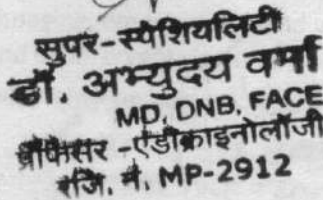 सुपर-स्पेशियलिटी
डॉ. अभ्युदय वर्मा
MD, DNB, FACE
प्रोफेसर -एंडोक्राइनोलॉजी
रजि. नं. MP-2912